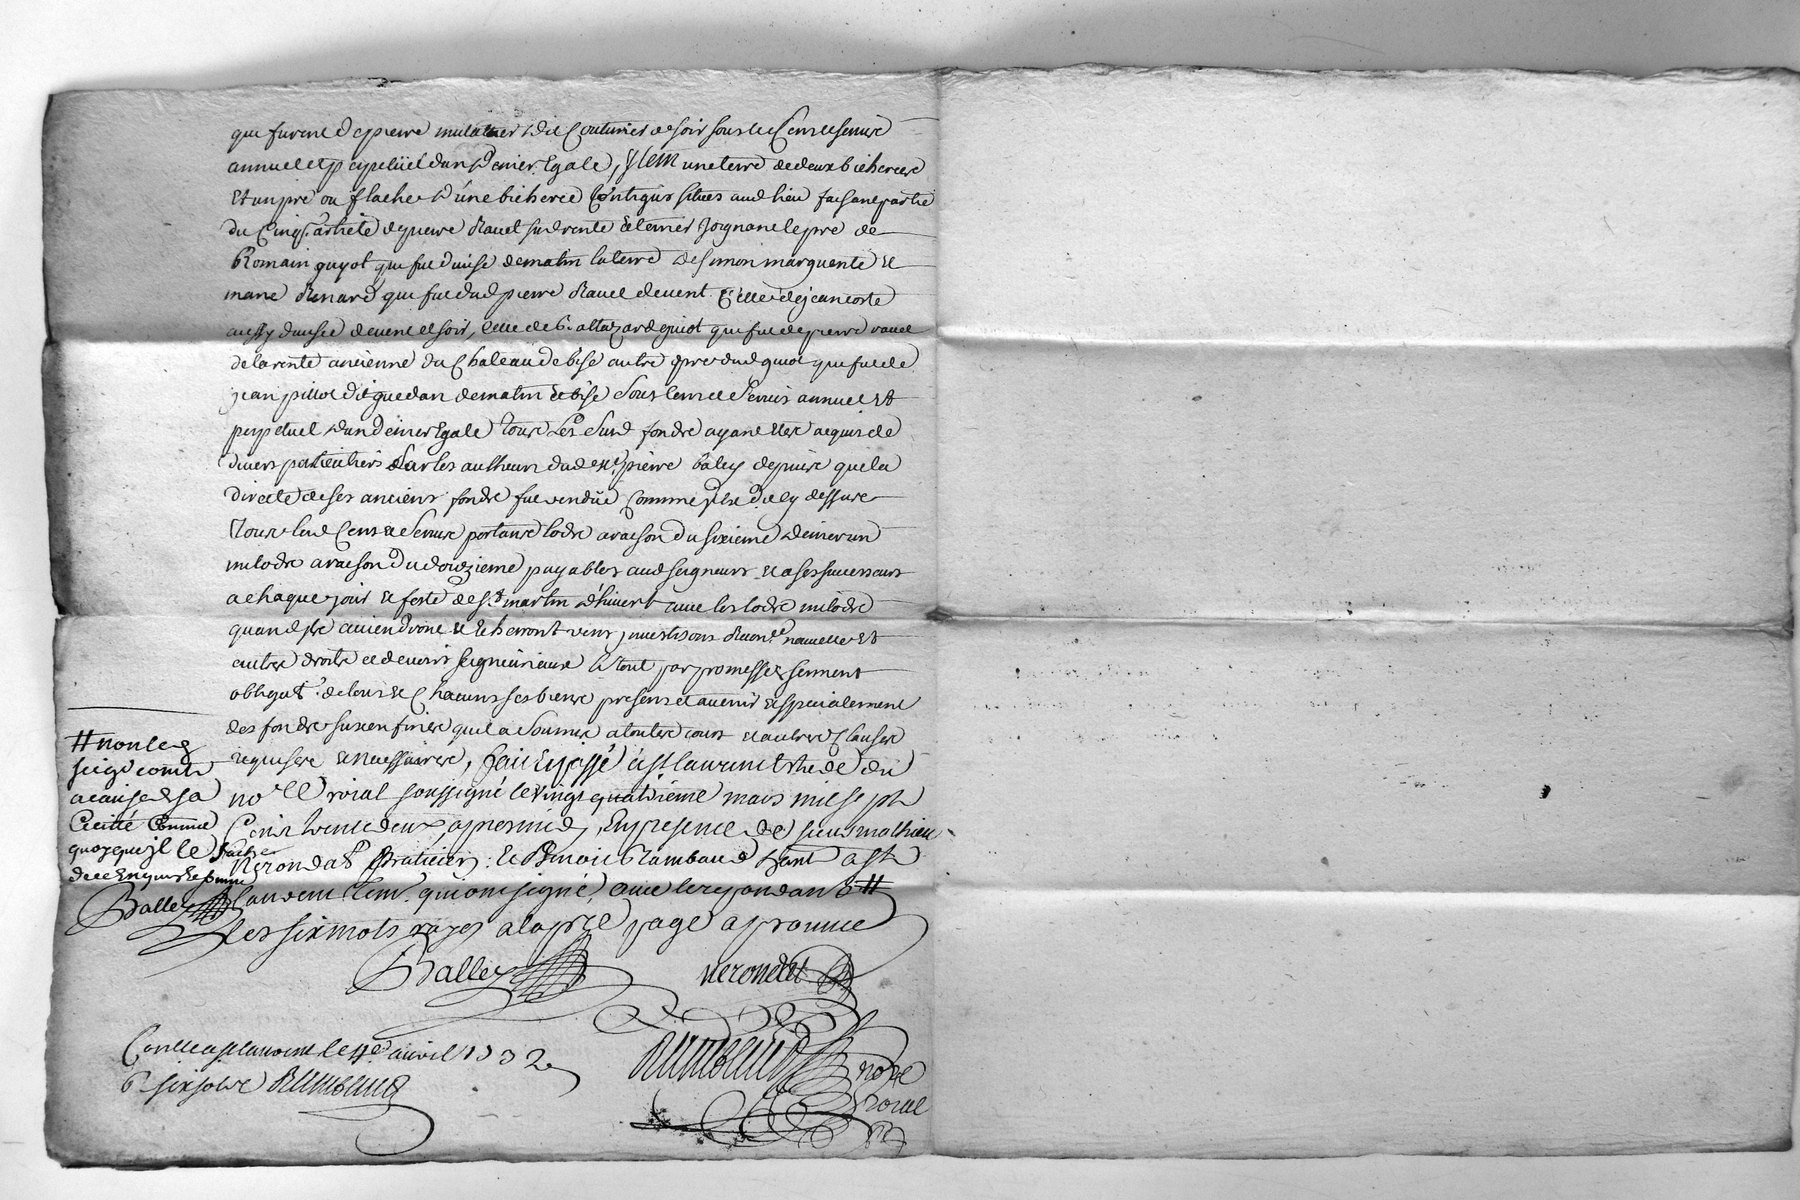 que furent de pierre mulatier dit Couturier de soir sous le Cens et servis
annuel et perpetuel d'un Denier Egale, Item une terre de deux bicherees
Et un pré ou flache d'une bicheree Contigus situes aud lieu faisant partie
du Cinq.e article de pierre Ravel surd rente et terrier Joignant le pré de
Romain guyot que fut de matin la terre de simon marguerite et
marie Renard que fut dud pierre Ravel de vent. Celle de jean coste
aussy de vent et soir, celle de baltazard guiot que fut de pierre ravel
de la rente ancienne du Chateau de bise autre pré dud guiot que fut de
jean pillot dit guedan de matin et bise sous cens et servis annuel Et
perpetuel d'un denier Egale tous Les Susd fonds ayant été acquis de
divers particuliers par les autheurs dud pierre balley depuis que la
directe de ses anciens fonds fut vendüe Comme il est dit cy dessus
Tous lesd Cens et servis portants lods a raison du sixieme denier un
milods a raison du douzieme payables aud seigneur et a ses successeurs
a chaque jour et feste de s.t martin d'hiver avec les lods milods
quand ils aviendront et echerront
autres droits et devoirs seigneuriaux le tout par promesse serment
obligat.on de tous et Chacuns ses biens presens et avenir et specialement
des fonds susconfinés qu'il a soumis a toutes cours et autres Clauses
requises et necessaires, fait et passé a s.t laurent etude du
no.re roial soussigné le vingt quatrieme mars mil sept
Cent trente deux apres midy, En presence de sieur mathieu
Nerondat Praticien et Benoit Rambaud de s.t
laurent tem. qui ont signé avec le repondant #
les six mots rayes a la p.re page approuvé
# non led
seig.r comte
a cause de sa
Cecité Comme
quoy qu'il le sache
de ce Enquis et somme
Balley
Balley
Nerondat
Rambaud
no.re
roial
Con.llé a s.t laurent le 4.e avril 1732
R six sols Rambaud